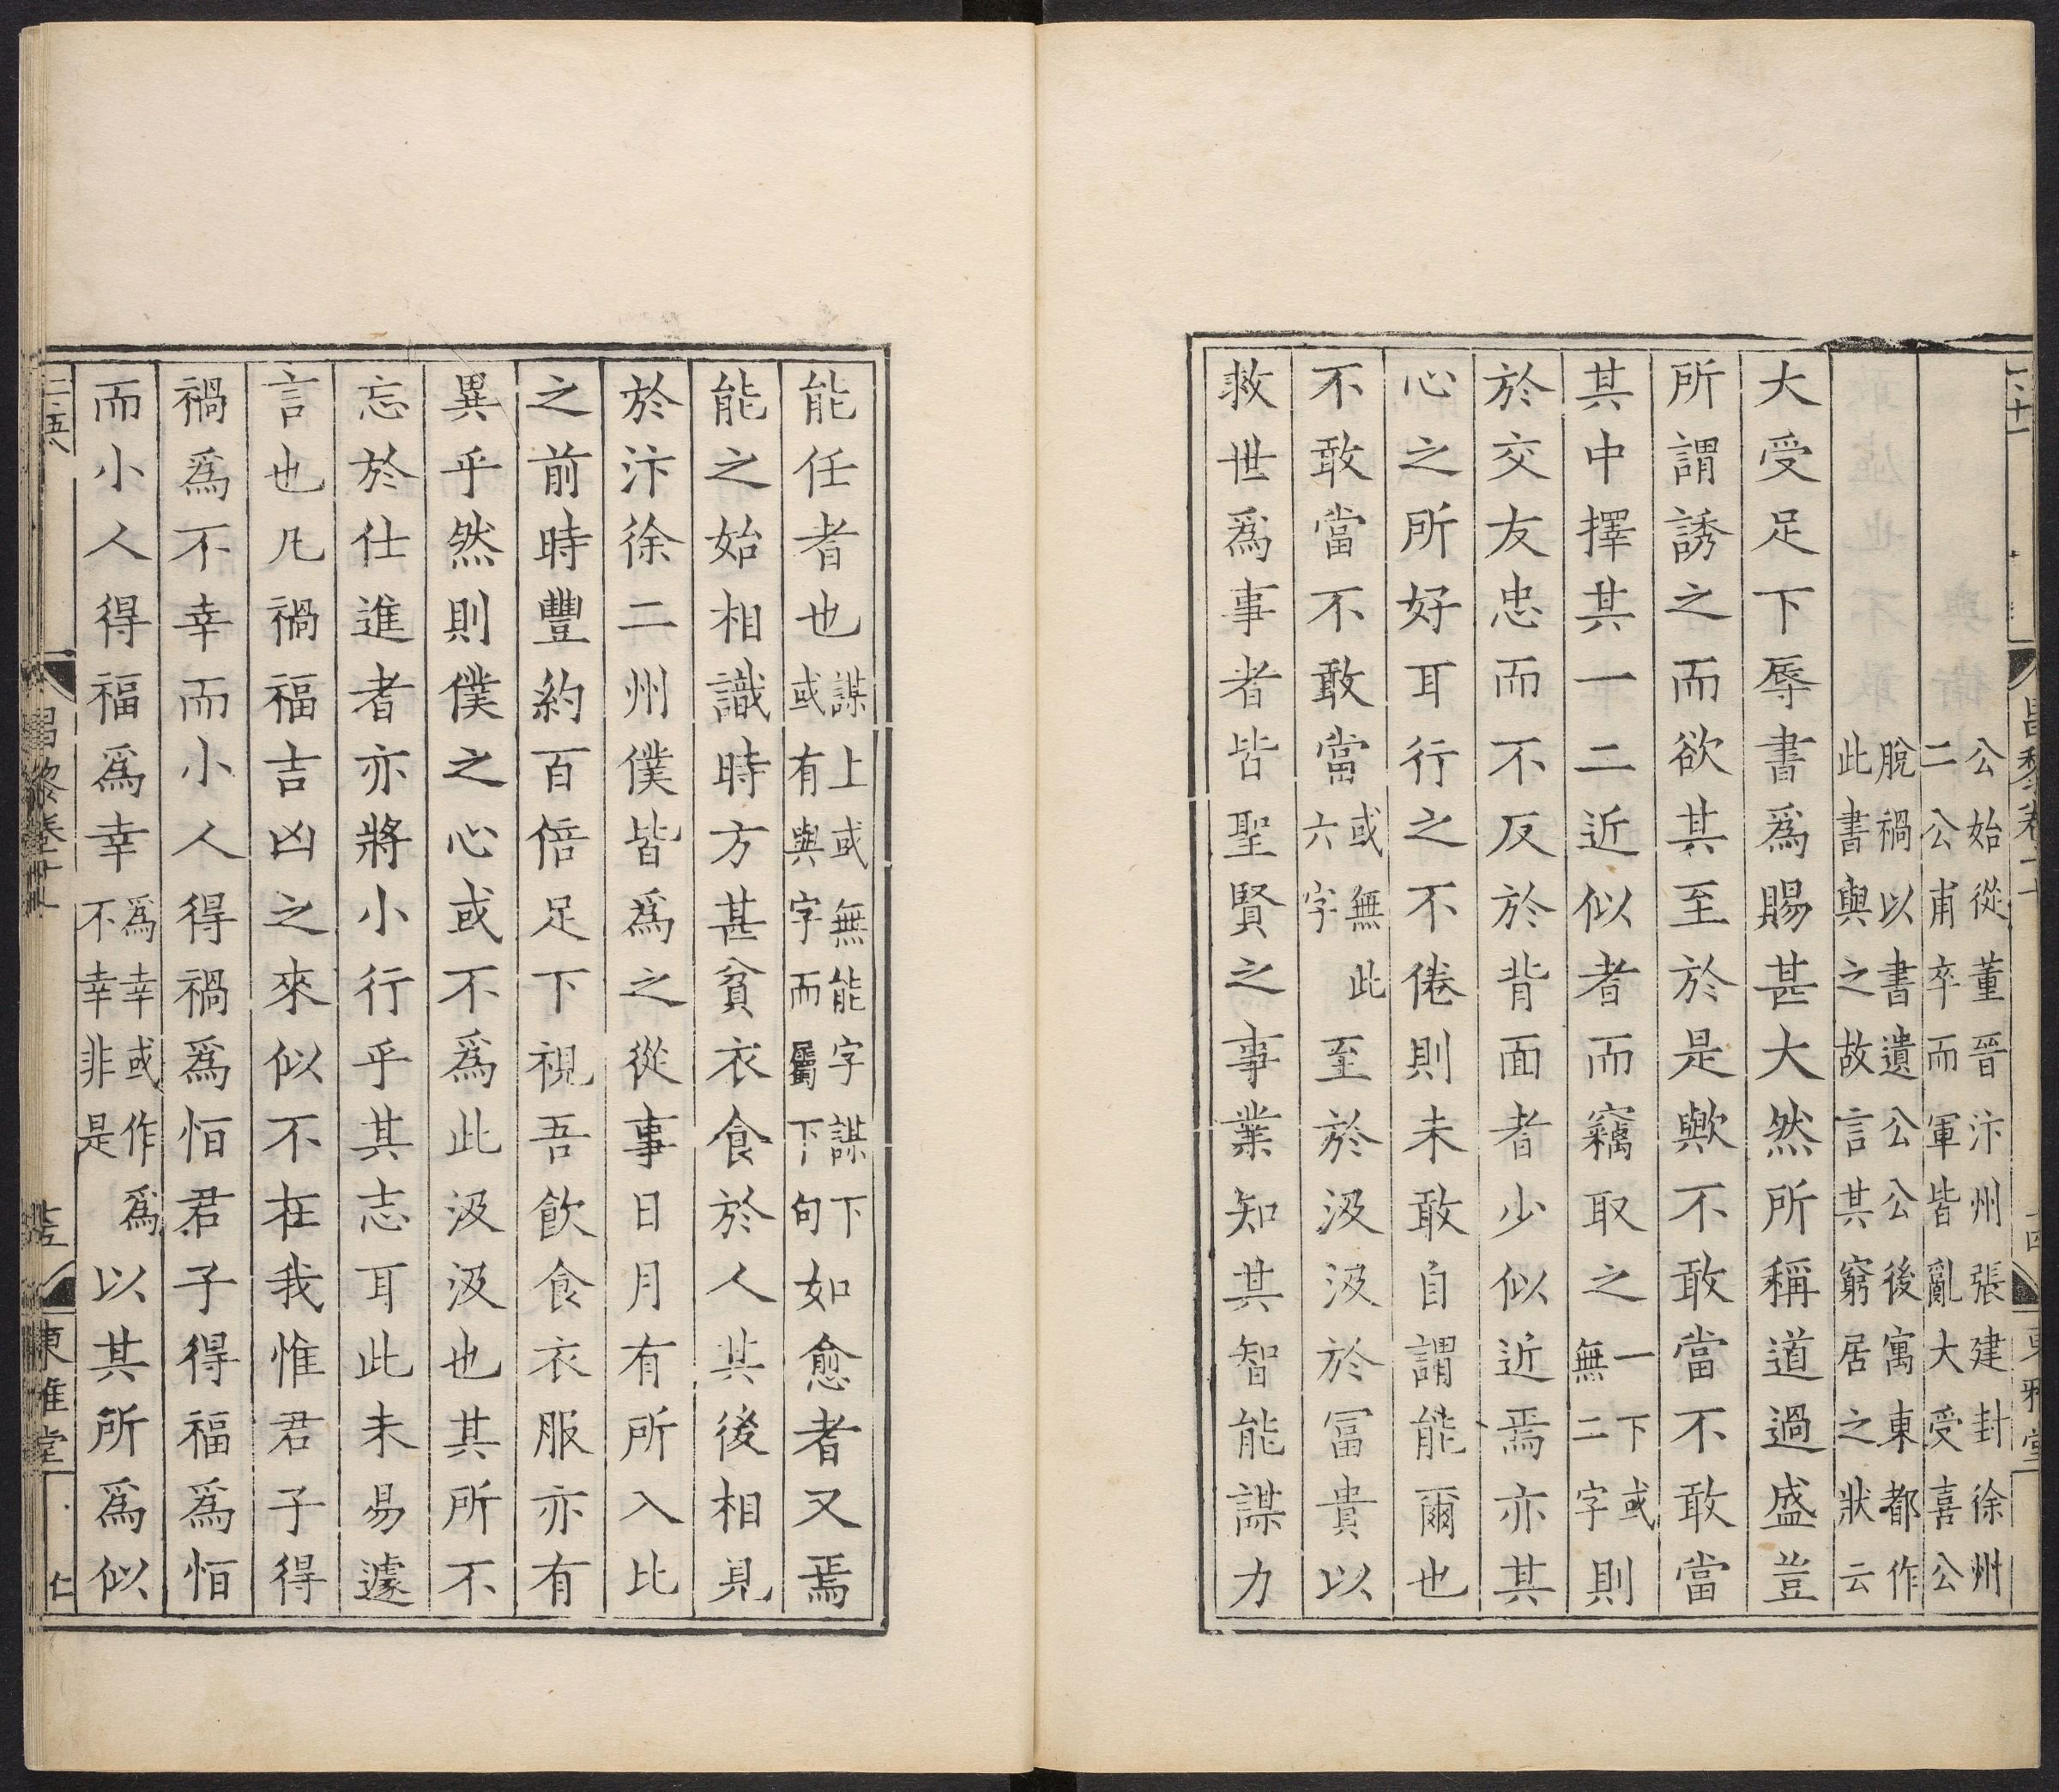 公始從董晉汴州張建封徐州
二公甫卒而軍皆亂大受喜公
脫禍以書遺公公後寓東都作
此書與之故言其窮居之狀云
大受足下辱書爲賜甚大然所稱道過盛豈
所謂誘之而欲其至於是歟不敢當不敢當
其中擇其一二近似者而竊取之一下或無二字則
於交友忠而不反於背面者少似近焉亦其
心之所好耳行之不倦則未敢自謂能爾也
不敢當不敢當或無此六字至於汲汲於富貴以
救世爲事者皆聖賢之事業知其智能謀力
能任者也謀上或無能字謀下或有與字而屬下句如愈者又焉
能之始相識時方甚貧衣食於人其後相見
於汴徐二州僕皆爲之從事日月有所入比
之前時豐約百倍足下視吾飲食衣服亦有
異乎然則僕之心或不爲此汲汲也其所不
忘於仕進者亦將小行乎其志耳此未易遽
言也凡禍福吉凶之來似不在我惟君子得
禍爲不幸而小人得禍爲恒君子得福爲恒
而小人得福爲幸爲幸或作爲不幸非是以其所爲似
東雅堂
仁